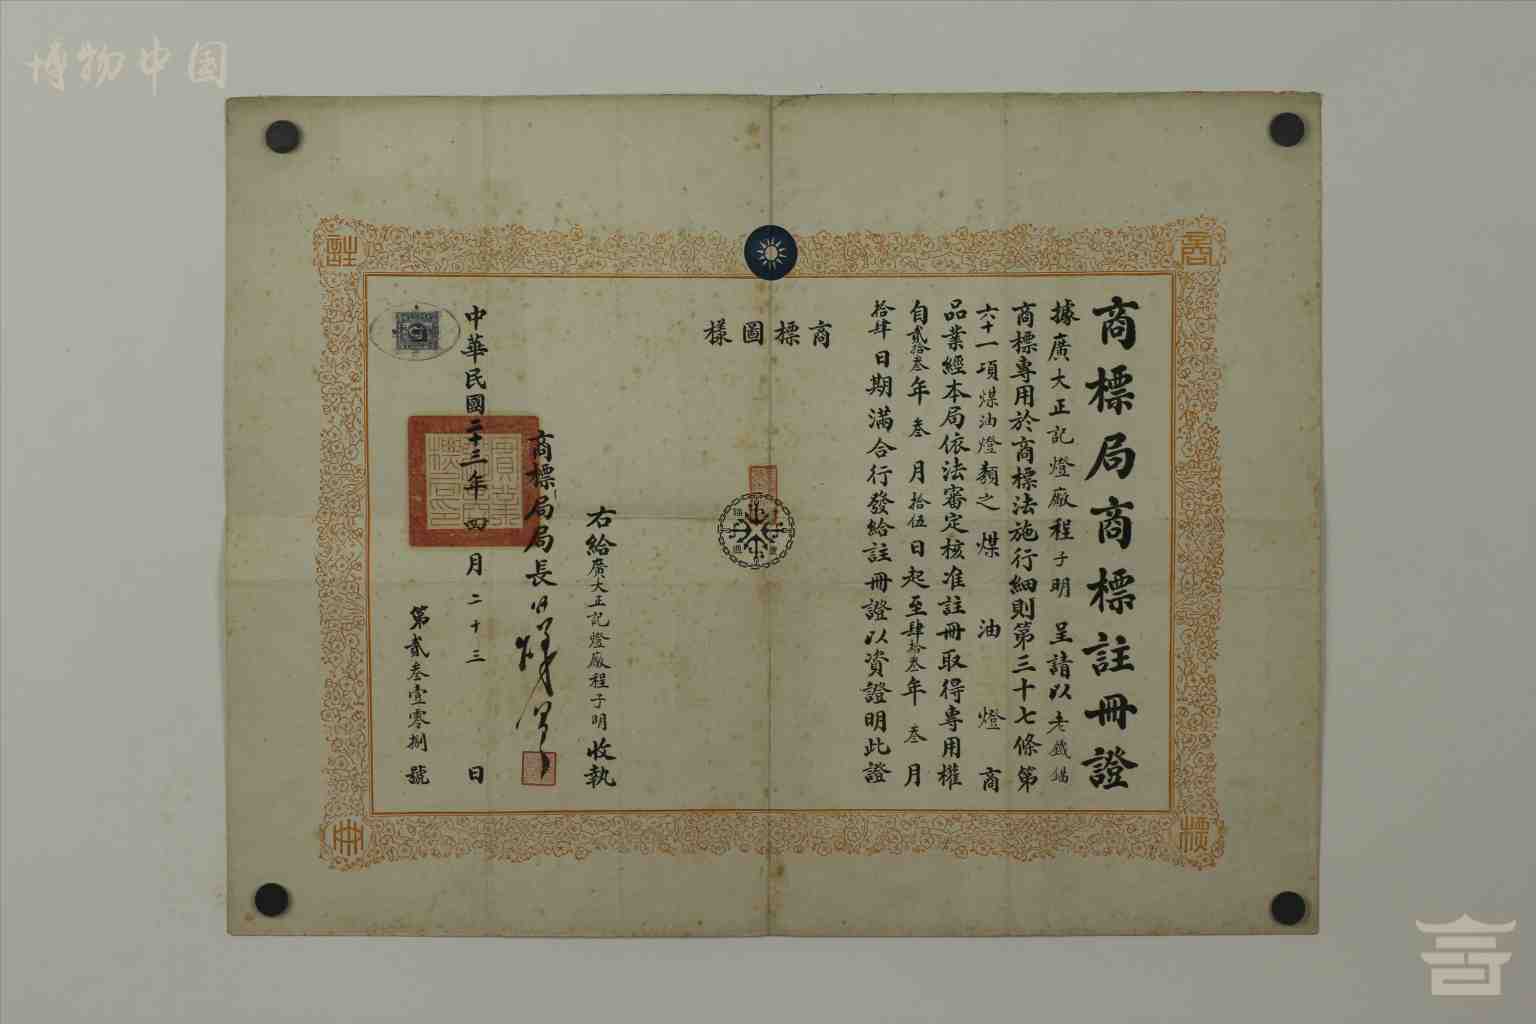 博物中国
商標局商標註冊證
據廣大正記燈廠程子明呈請以老鐵錨
商標專用於商標法施行細則第三十七條第
六十一項煤油燈類之煤油燈商
品業經本局依法審定核准註冊取得專用權
自貳拾叁年叁月拾伍日起至肆拾叁年叁月
拾肆日期滿合行發給註冊證以資證明此證
商標圖樣
右給廣大正記燈廠程子明收執
商標局局長
中華民國二十三年四月二十三日
第貳叁壹零捌號
商
標
註
冊